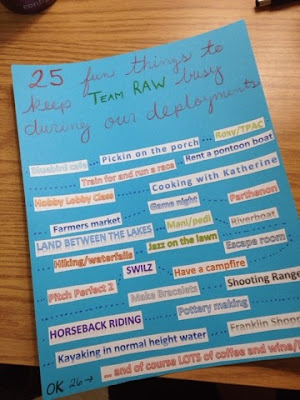 25 fun things to
keep TEAM RAW busy
during our deployments
Roxy/TPAC
Pickin on the porch
Bluebird cafe
Rent a pontoon boat
Train for and run a race
Cooking with Katherine
Hobby Lobby Class
Game night
Parthenon
Farmers market
Mani/pedi
Riverboat
LAND BETWEEN THE LAKES
Jazz on the lawn
Escape room
Hiking/waterfalls
SWILZ
Have a campfire
Pitch Perfect 2
Make Bracelets
Shooting Range
Pottery making
HORSEBACK RIDING
Franklin Shopp
Kayaking in normal height water
... and of course LOTS of coffee and wine/
OK 26 →